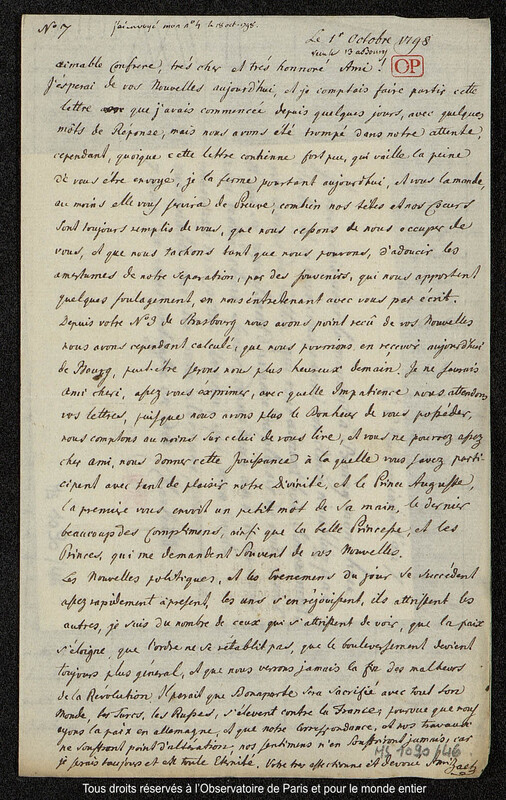 N° 7 j'ai envoyé mon n° 4 le 18 oct. 1798.
Le 1r Octobre 1798
13
OP
aimable Confrere, très cher et très honnoré Ami!
J'esperai de vos Nouvelles aujourd'hui, et je comptais faire partir cette
lettre que j'avais commencée depuis quelques jours, avec quelques
môts de Reponse, mais nous avons été trompé dans notre attente,
cependant, quoique cette lettre contienne fort peu, qui vaille la peine
de vous être envoyé, je la ferme pourtant aujourd'hui, et vous la mande,
au moins elle vous servira de Preuve, combien nos têtes et nos Coeurs
sont toujours remplis de vous, que nous cessons de nous occuper de
vous, et que nous tachons tant que nous pouvons, d'adoucir les
amertumes de notre Separation, par des souvenirs, qui nous apportent
quelques soulagement, en nous entretenant avec vous par écrit.
Depuis votre N° 3 de Strasbourg nous avons point recû de vos Nouvelles
nous avons cependant calculé, que nous pourrions en recevoir aujourd'hui
de Bourg, peut-etre serons nous plus heureux demain. Je ne saurais
ami cheri, assez vous exprimer, avec quelle Impatience nous attendons
vos lettres, puisque nous avons plus le Bonheur de vous posséder,
nous comptons au moins sur celui de vous lire, et vous ne pourrez assez
cher ami, nous donner cette Jouissance à la quelle vous savez parti
cipent avec tant de plaisir notre Divinité, et le Prince Auguste,
la premiere vous envoit un petit môt de sa main, le dernier
beaucoup des Complimens, ainsi que la belle Princesse, et les
Princes, qui me demandent souvent de vos Nouvelles.
Les Nouvelles politiques, et les Evenemens du jour se succedent
assez rapidement àpresent, les uns s'en rejouissent, ils attristent les
autres, je suis du nombre de ceux qui s'attristent de voir, que la paix
s'éloigne, que l'ordre ne se rétablit pas, que le bouleversement devient
toujours plus general, et que nous verrons jamais la fin des malheurs
de la Revolution. Il parait que Bonaparte sera sacrifié avec tout son
Monde, les Turcs, les Russes, s'élevent contre la France, pourvue que nous
ayons la paix en allemagne, et que notre Correspondance, et nos travaux
ne souffrent point d'alteration, nos sentimens n'en souffriront jamais, car
je serais toujours et de toute Eternité. Votre très affectionné et devoué Ami Zach
Ms 1090/46
Tous droits réservés à l'Observatoire de Paris et pour le monde entier